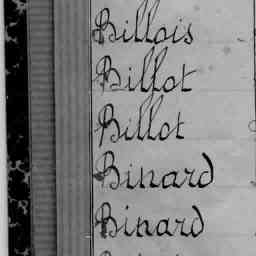 Billois
Billot
Billot
Binard
Binard